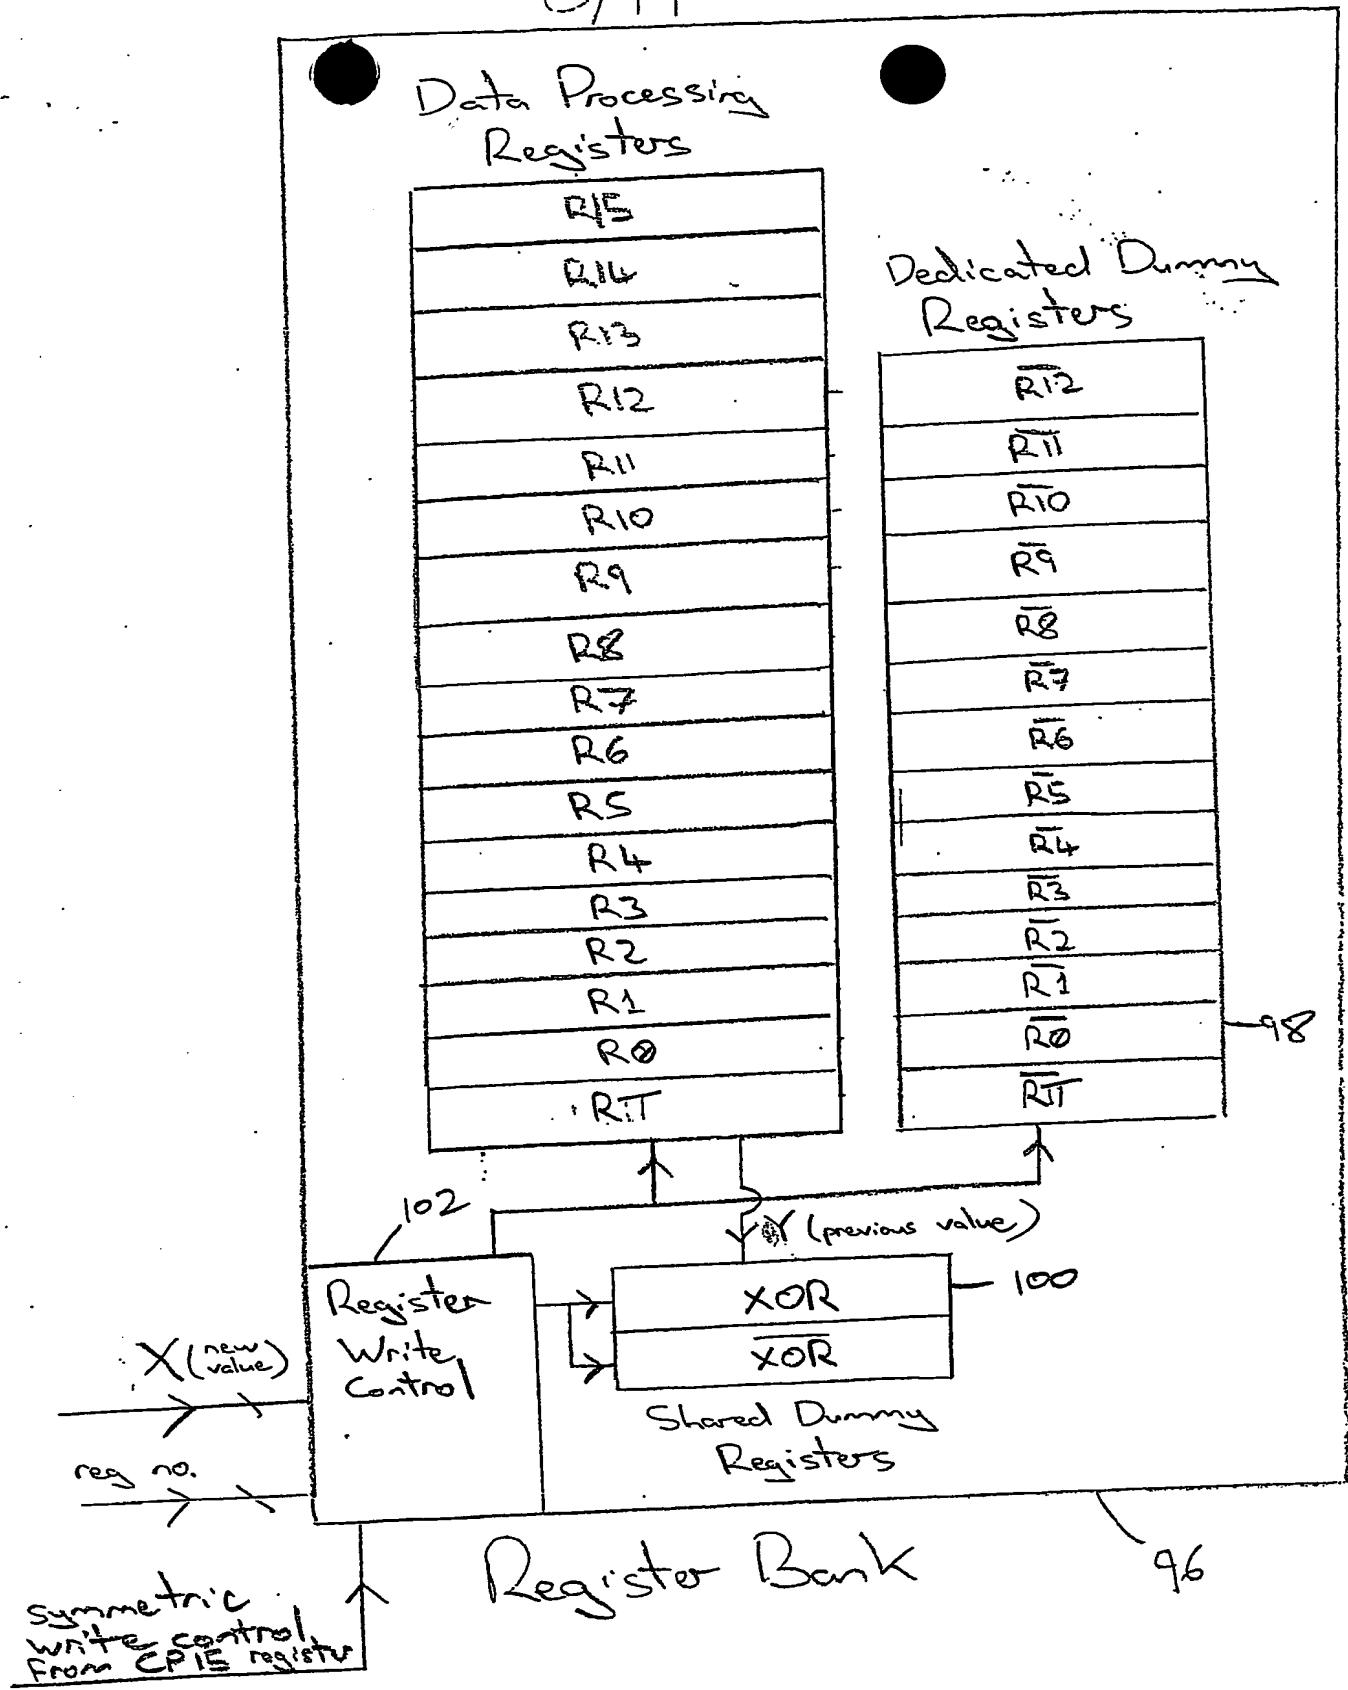 Data Processing
Registers
R15
R14
R13
R12
R11
R10
R9
R8
R7
R6
R5
R4
R3
R2
R1
R0
RT
Dedicated Dummy
Registers
R̅1̅2̅
R̅1̅1̅
R̅1̅0̅
R̅9̅
R̅8̅
R̅7̅
R̅6̅
R̅5̅
R̅4̅
R̅3̅
R̅2̅
R̅1̅
R̅0̅
R̅T̅
98
102
Y (previous value)
Register
Write
Control
XOR
X̅O̅R̅
100
Shared Dummy
Registers
X (new
value)
reg no.
symmetric
write control
from CP15 register
Register Bank
96